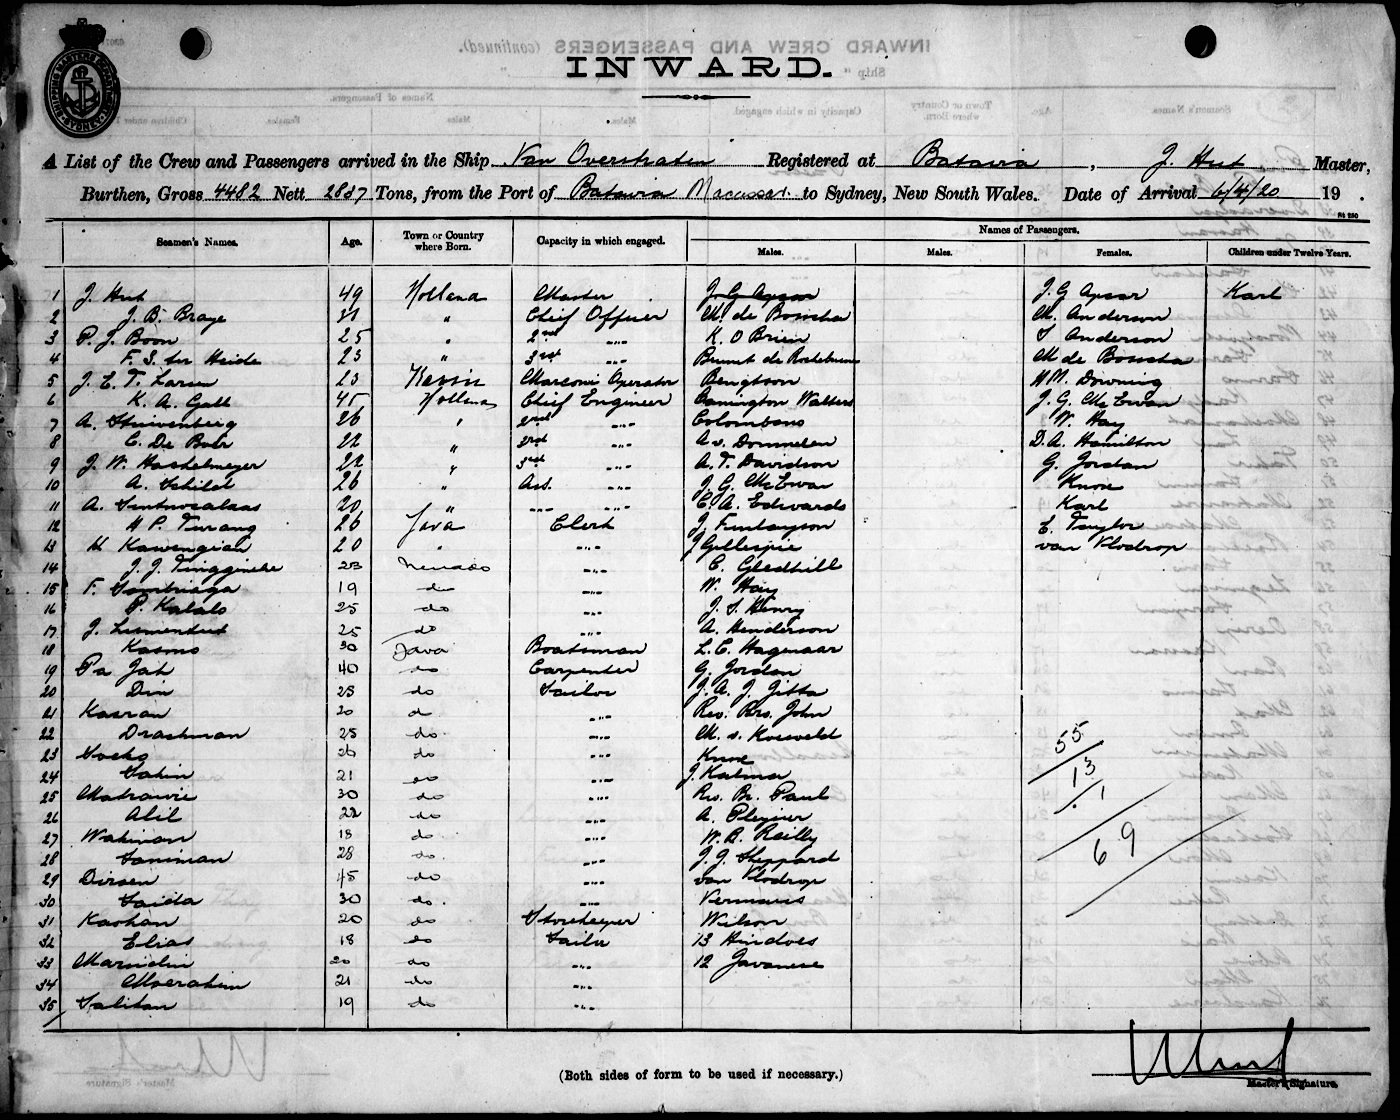 INWARD.
SHIPPING MASTERS DEPARTMENT SYDNEY
A List of the Crew and Passengers arrived in the Ship Van Overstraten Registered at Batavia, J. Hut Master,
Burthen, Gross 4482 Nett 2837 Tons, from the Port of Batavia Macassar to Sydney, New South Wales. Date of Arrival 6/4/20 19 .
St 250
Seamen's Names. Age. Town or Country where Born. Capacity in which engaged. Names of Passengers.
Males. Males. Females. Children under Twelve Years.
1 J. Hut 49 Holland Master J. G. Apcar J. G. Apcar Karl
2 J. B. Braye 31 " Chief Officer M. de Bowcha M. Anderson
3 P. J. Boon 25 " 2nd " K. O Brien S Anderson
4 F. S. ter Heide 23 " 3rd " M de Bowcha
5 J. E. T. Larsen 23 Marconi Operator Bengtson Downing
6 K. A. Gall 45 Holland Chief Engineer Camington Walters J. G. McEwan
7 A. Stuivenberg 26 " 2nd " Colombons W. Hay
8 C. De Boer 22 " 3rd " A v. Dommelen D. A. Hamilton
9 J. W. Hashelmeyer 22 " 3rd " A. T. Davidson G. Jordan
10 A. Schild 26 " Ast. " J. G. McEwan Knox
11 A. 20 " " " C. A. Edwards Karl
12 H P. Turang 26 Java Clerk J. Finlayson E. Taylor
13 H Kawengian 20 " " J Gillespie van Vlodrop
14 J. J. Tinggenehe 23 Menado " C. Gledhill
15 F. Sambiaga 19 do " W. Hay
16 P. Kalalo 25 do " J. S. Henry
17 J. Lumentut 25 do " A. Henderson
18 Kasmo 30 Java Boatsman L. C. Hagenaar
19 Pa Jah 40 do Carpenter G. Jordan
20 Din 25 do Sailor J. A. J. Jitta
21 Kasran 20 do " Rev. Bro. John
22 Drachman 25 do " M. v. Kosveld
23 26 do " Knox
24 Satin 21 do " J. Kalma
25 Matrawie 30 do " Rev. Br. Paul
26 Alil 22 do " A. Pleyier
27 Wakiman 18 do " W. B. Reilly
28 Saniman 28 do " J. J. Sheppard
29 Dirsen 45 do " van Vlodrop
30 Saida 30 do " Vermaus
31 Kaohan 20 do Storekeeper Wilson
32 Elias 18 do Sailor 13 Hindoes
33 Marsidin 20 do " 12 Javanese
34 Moerakim 21 do "
35 Salihan 19 do "
55
13
1
69
(Both sides of form to be used if necessary.)
Master's Signature.